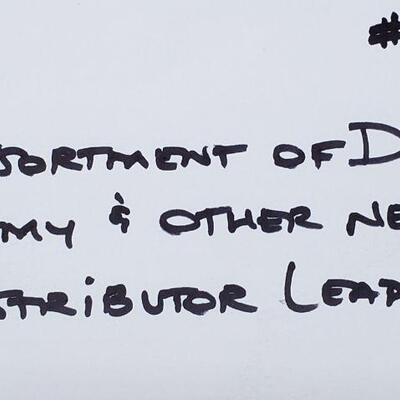 #
SORTMENT OF D
MY & OTHER NE
TRIBUTOR LEAD